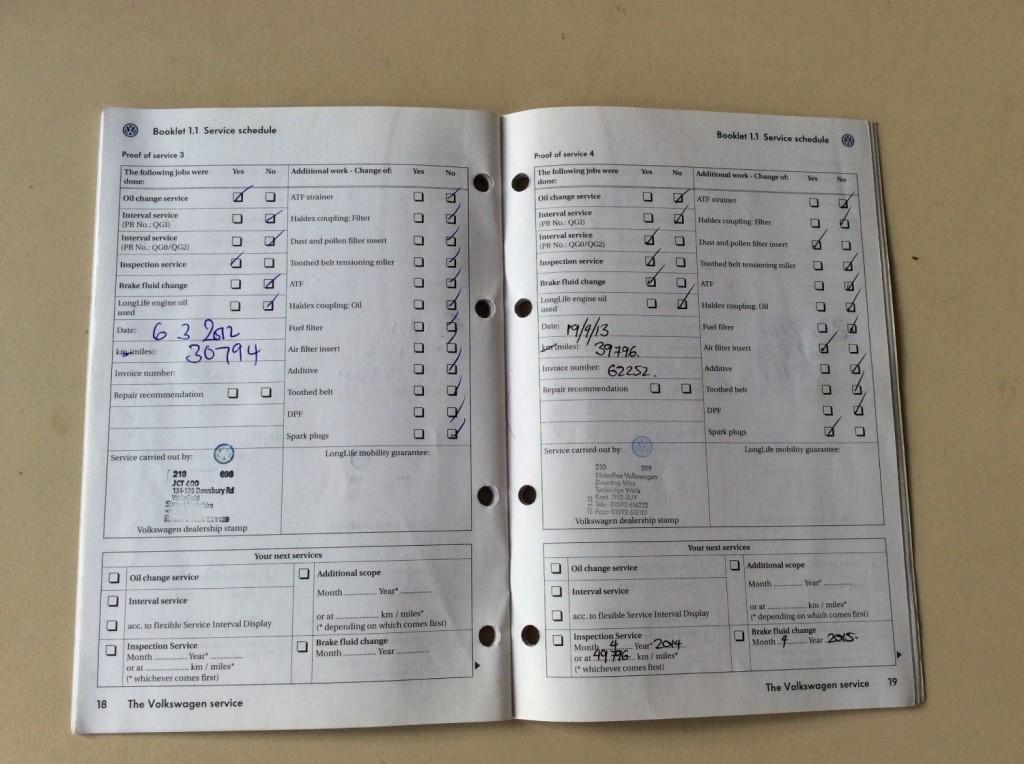 Booklet 1.1 Service schedule
Proof of service 3
The following jobs were done: Yes No
Additional work - Change of: Yes No
Oil change service
ATF strainer
Interval service
(PR No.: QG1)
Haldex coupling: Filter
Interval service
(PR No.: QG0/QG2)
Dust and pollen filter insert
Inspection service
Toothed belt tensioning roller
Brake fluid change
ATF
LongLife engine oil
used
Haldex coupling: Oil
Date: 6 3 2012
Fuel filter
km (miles): 30794
Air filter insert
Invoice number:
Additive
Repair recommendation
Toothed belt
DPF
Spark plugs
Service carried out by:
LongLife mobility guarantee:
210 698
JCT 600
Dewsbury Rd
Volkswagen dealership stamp
Your next services
Oil change service
Additional scope
Month ............ Year* ............
Interval service
or at ............ km / miles*
acc. to flexible Service Interval Display
(* depending on which comes first)
Inspection Service
Month ............ Year* ............
or at ............ km / miles*
(* whichever comes first)
Brake fluid change
Month ............ Year ............
18 The Volkswagen service
Booklet 1.1 Service schedule
Proof of service 4
The following jobs were done: Yes No
Additional work - Change of: Yes No
Oil change service
ATF strainer
Interval service
(PR No.: QG1)
Haldex coupling: Filter
Interval service
(PR No.: QG0/QG2)
Dust and pollen filter insert
Inspection service
Toothed belt tensioning roller
Brake fluid change
ATF
LongLife engine oil
used
Haldex coupling: Oil
Date: 19/4/13
Fuel filter
km (miles): 39796.
Air filter insert
Invoice number: 62252.
Additive
Repair recommendation
Toothed belt
DPF
Spark plugs
Service carried out by:
LongLife mobility guarantee:
210 399
Motorline Volkswagen
Dowding Way
Tunbridge Wells
Kent TN2 3UY
Volkswagen dealership stamp
Your next services
Oil change service
Additional scope
Month ............ Year* ............
Interval service
or at ............ km / miles*
acc. to flexible Service Interval Display
(* depending on which comes first)
Inspection Service
Month 4 Year* 2014
or at 49796 km / miles*
(* whichever comes first)
Brake fluid change
Month 4 Year 2015.
The Volkswagen service 19